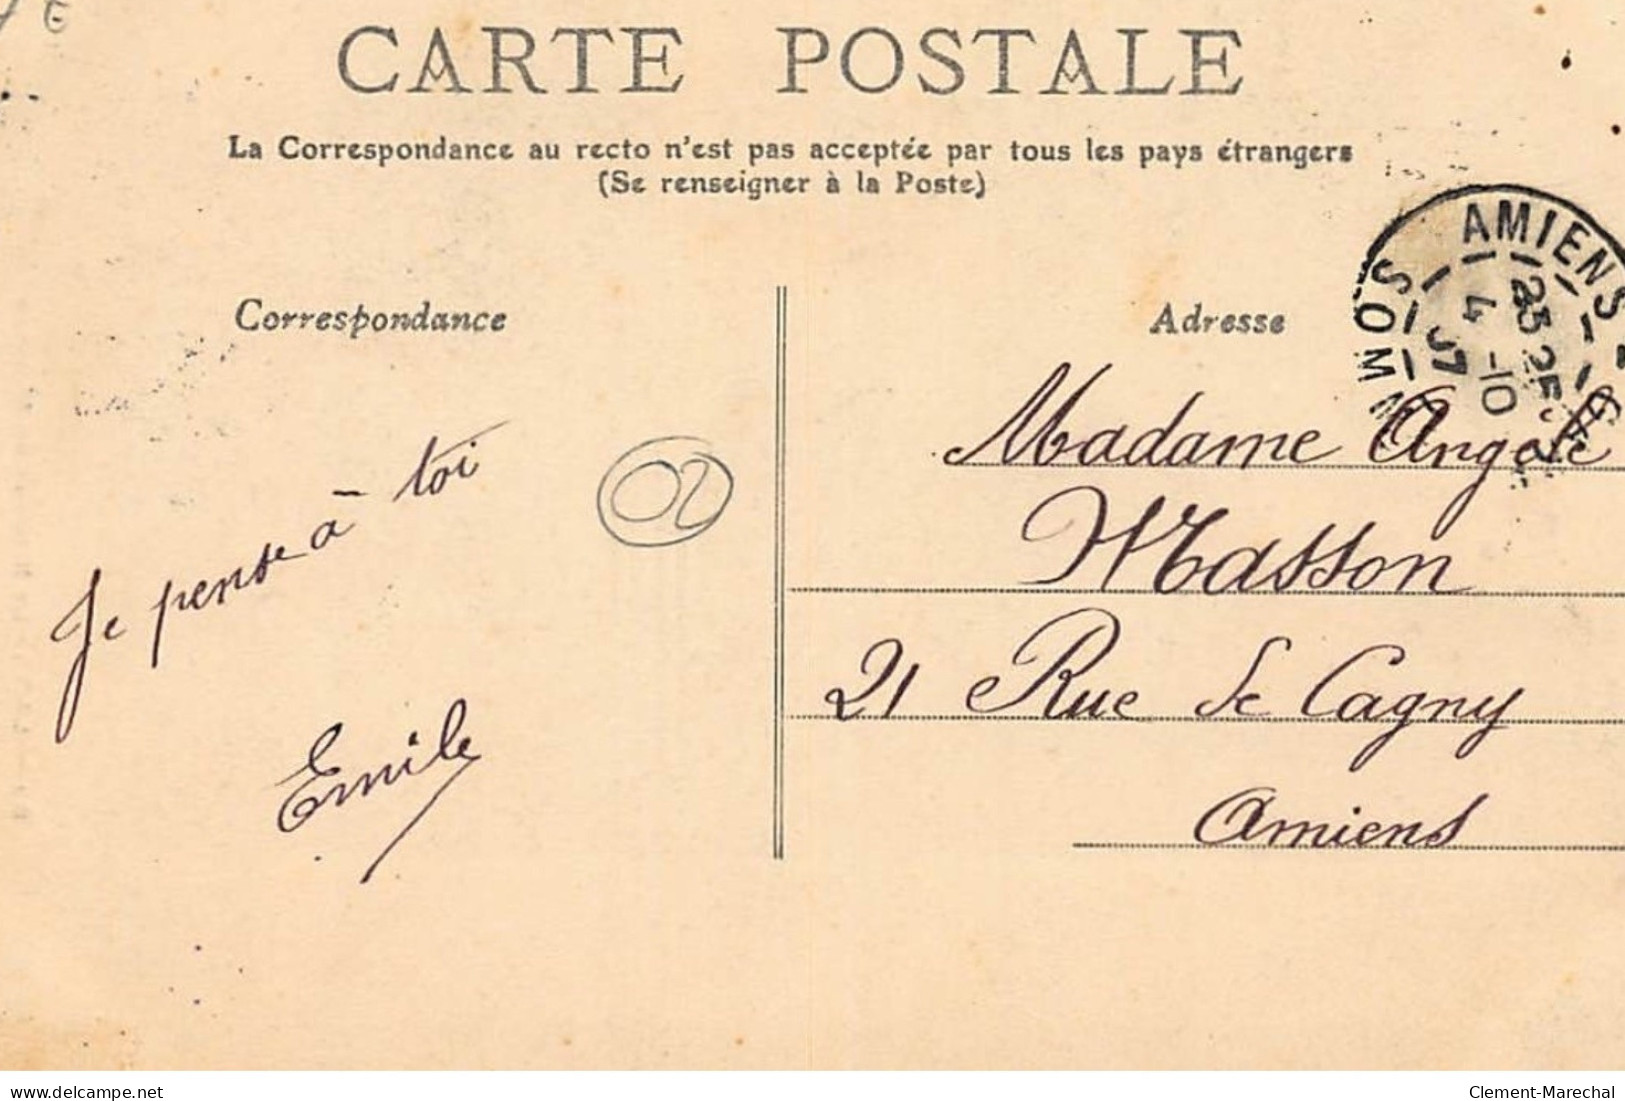 CARTE POSTALE
La Correspondance au recto n'est pas acceptée par tous les pays étrangers
(Se renseigner à la Poste)
AMIENS
SOMME
4 -10
07
Correspondance
Adresse
Je pense à toi
Emile
02
Madame Angèle
Masson
21 Rue de Cagny
Amiens
delcampe.net
Clement-Marechal